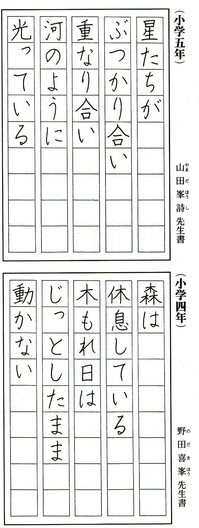 (小学五年)
星たちが
ぶつかり合い
重なり合い
河のように
光っている
山田峯詩先生書
やまだほうし
(小学四年)
森は
休息している
木もれ日は
じっとしたまま
動かない
野田喜峯先生書
のだきほう